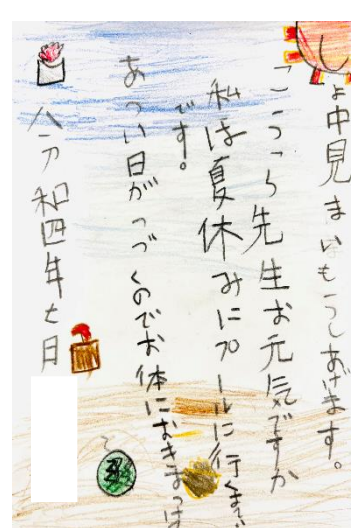 しょ中見まいもうしあげます。
先生お元気ですか
私は夏休みにプールに行く
です。
あつい日がつづくのでお体におきをつけ
令和四年七日